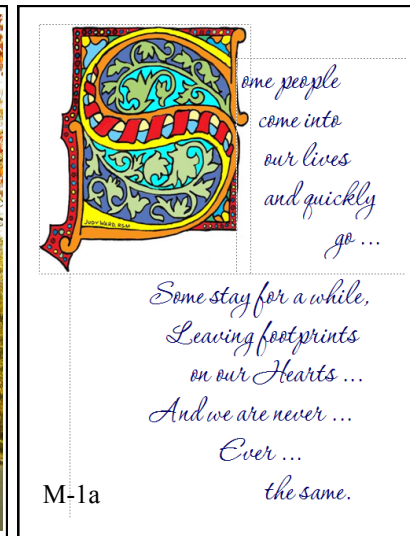 Some people
come into
our lives
and quickly
go ...
JUDY WARD, RSM
Some stay for a while,
Leaving footprints
on our Hearts ...
And we are never ...
Ever ...
the same.
M-1a